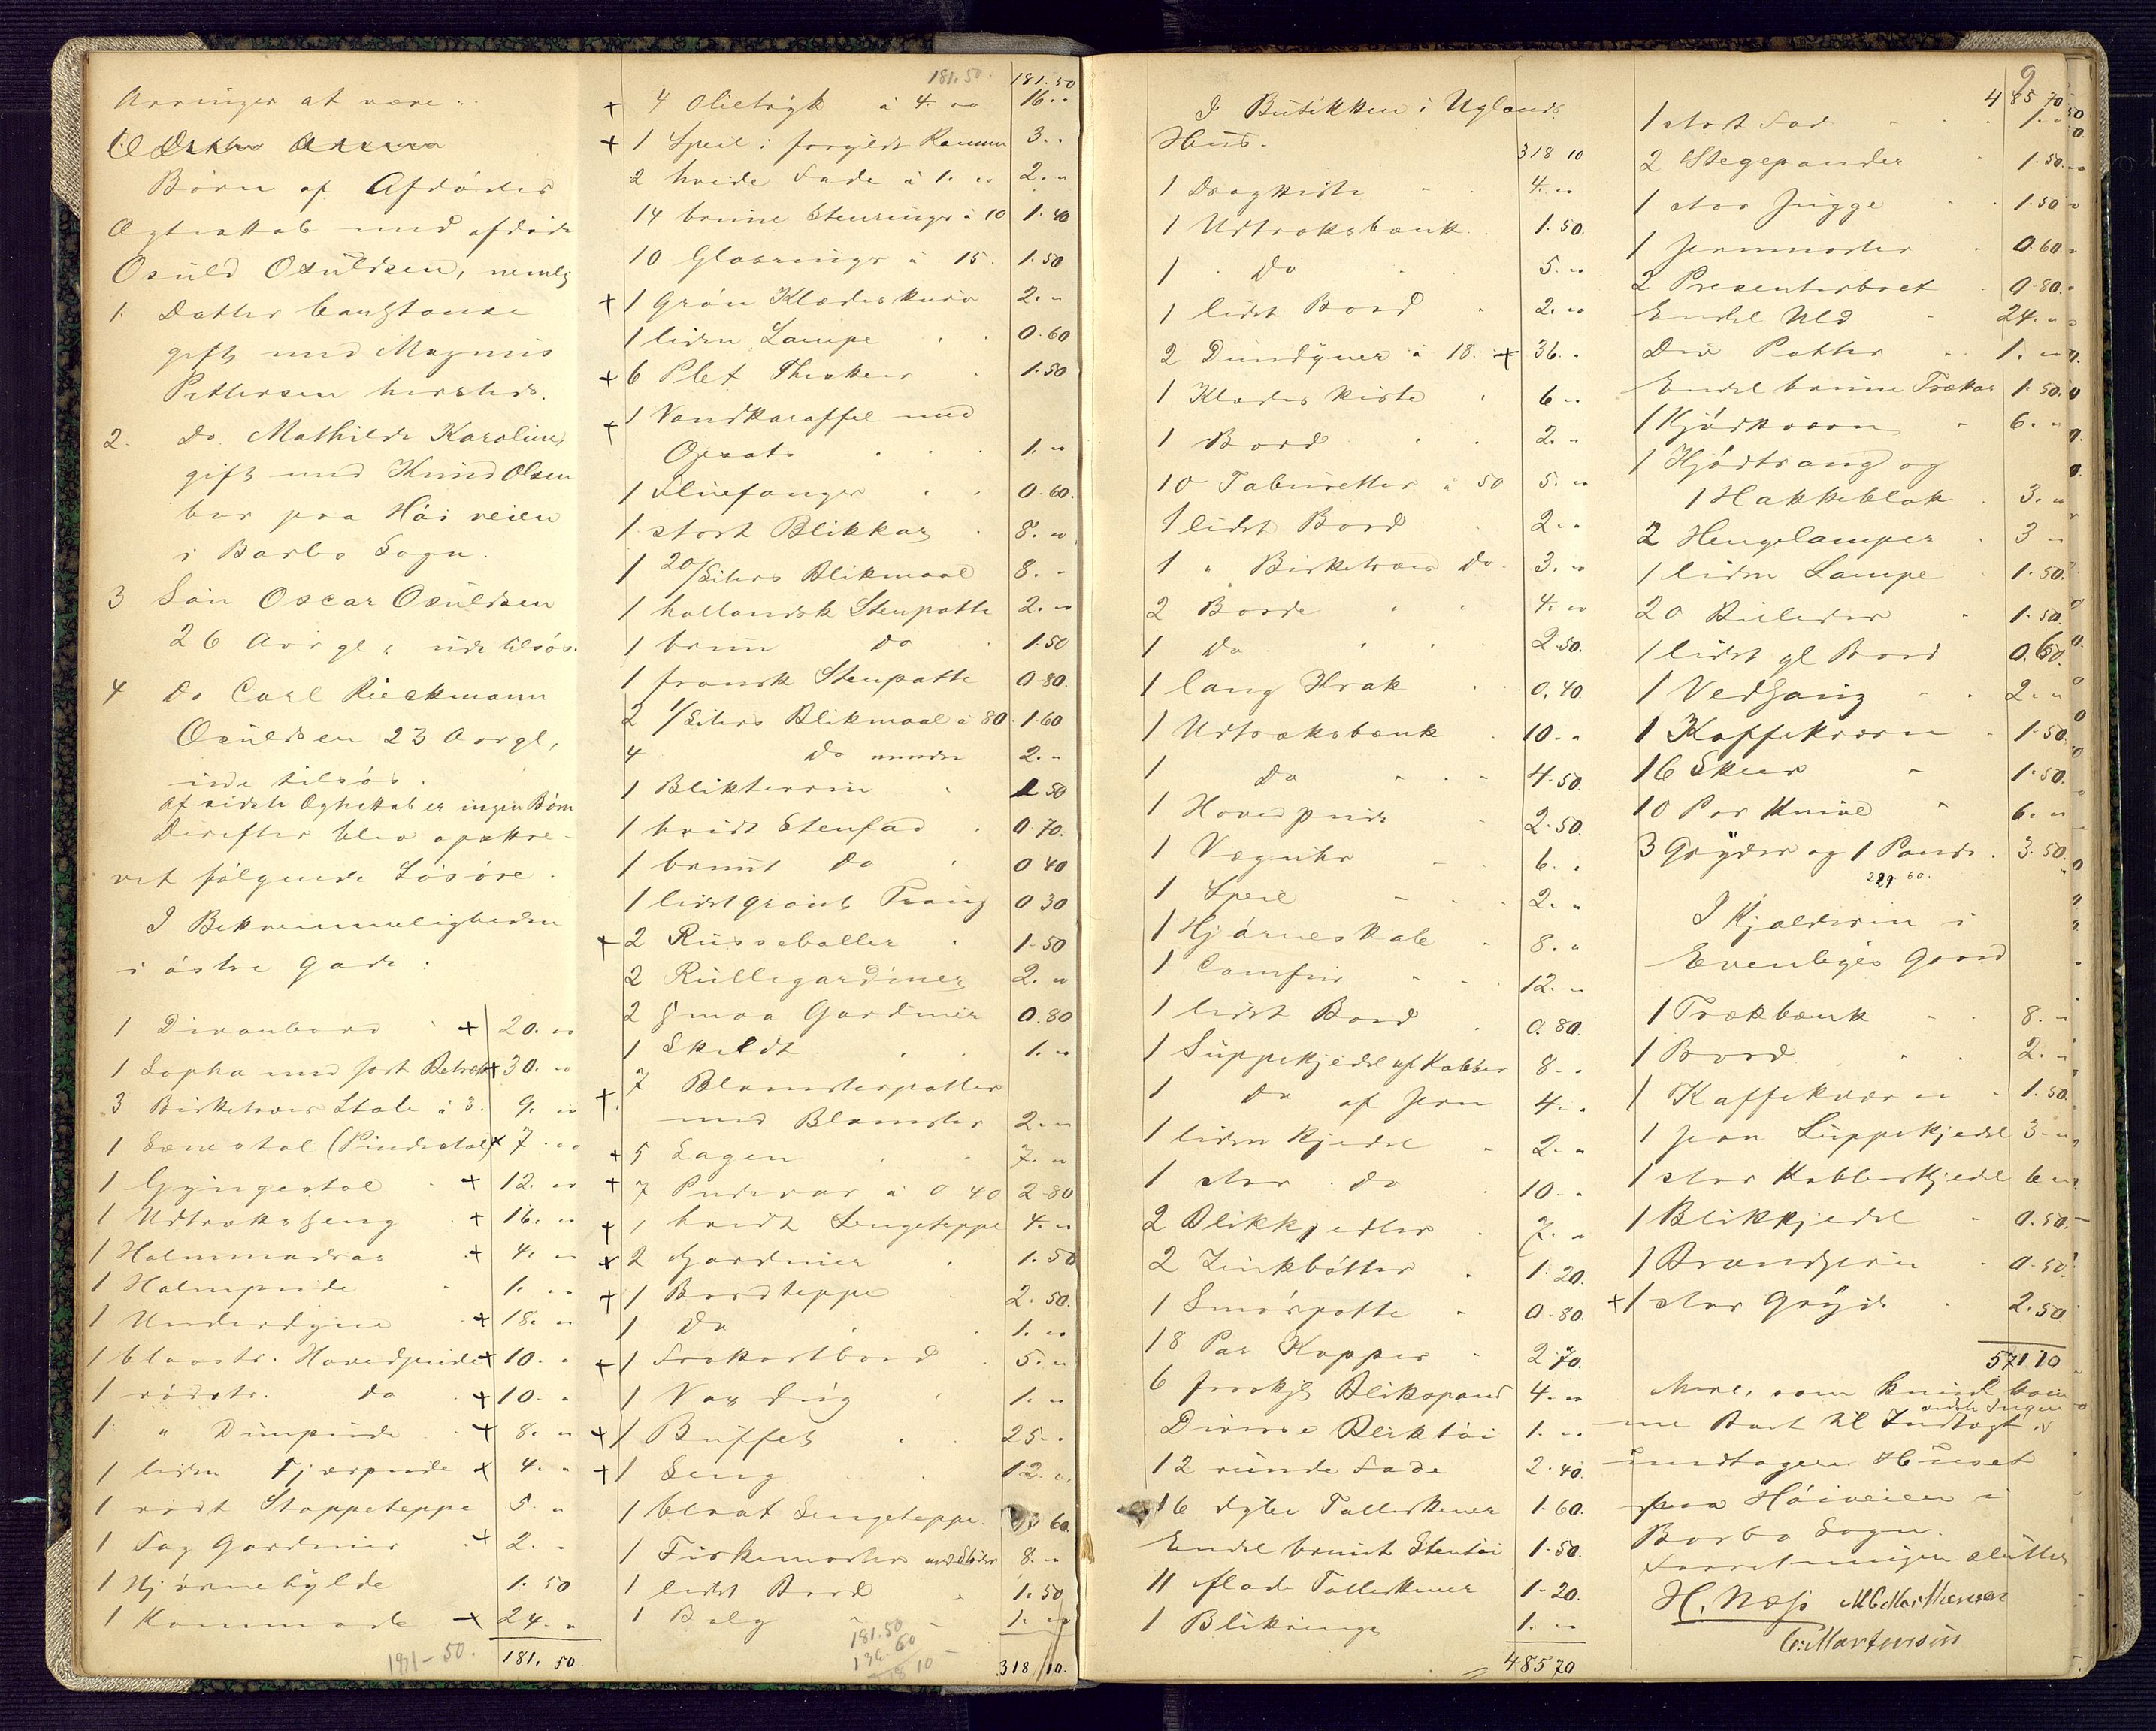 Arvinger at være:
Børn af Afdødes
Ægteskab med afdøde
Osuld Osuldsen, nemlig
1. Datter Constanse
gift med Magnus
Pettersen hersteds.
2. do. Mathilde Karoline,
gift med Knud Olsen
bor paa Høiveien
i Barbo Sogn.
3 Søn Oscar Osuldsen
26 Aar gl, ude tilsøs.
4 do Carl Rieckmann
Osuldsen 23 Aar gl,
ude tilsøs.
Af sidste Ægteskab er ingen Børn
Derefter blev opskre-
vet følgende Løsøre.
I Bekvemmeligheden
i østre Gade:
1 Divanbord + 20. "
1 Sopha med sort Betræk + 30. "
3 Birketræes Stole à 3. 9. "
1 Lænestol (Pindestol) x 7. "
1 Gyngestol + 12. "
1 Udtræksseng + 16. "
1 Halmmadras + 4. "
1 Halmpude 1. "
1 Underdyne + 18. "
1 blaastr. Hovedpude + 10. "
1 rødstr. do + 10. "
1 " Dunpude + 8. "
1 liden Fjærpude x 4. "
1 rødt Stoppeteppe 5. "
1 Fag Gardiner + 2. "
1 Hjørnehylde 1. 50
1 Kommode + 24. "
181-50. 181. 50.
181.50. 181.50
+ 4 Olietryk à 4. " 16. "
+ 1 Speil i forgyldt Ramme 3. "
2 hvide Fade à 1. " 2. "
14 brune Stenringer à 10 1. 40
10 Glasringe à 15. 1.50
+ 1 grøn Klædeskurv 2. "
1 liden Lampe 0.60
+ 6 Plet Theskeer 1.50
+ 1 Vandkaraffel med
Opsats 1. "
1 Fluefanger 0.60.
1 stort Blikkar 8. "
1 20/Liters Blikmaal 8. "
1 hollandsk Stenpotte 2. "
1 brun do 1.50
1 fransk Stenpotte 0.80.
2 1/Liters Blikmaal à 80. 1.60
4 do mindre 2. "
1 Blikterrin 1.50
1 hvidt Stenfad 0.70.
1 brunt do 0 40
1 lidet grønt Traug 0 30
+ 2 Russeboller 1-50
2 Rullegardiner 2. "
2 smaa Gardiner 0.80
1 Skildt 1. "
+. 7 Blomsterpotter
med Blomster 2. "
+ 5 Lagen 7. "
+ 7 Pudevar à 0 40 2-80
+ 1 hvidt Sengeteppe 4. "
x 2 Gardiner 1.50
+ 1 Bordteppe 2.50.
1 Do 1. "
+ 1 Frokostbord 5. "
1 Voxdug 1. "
+ 1 Buffet 25. "
+ 1 Seng 12. "
1 blaat Sengeteppe 60.
1 Fiskemorter med Støder 8. "
1 lidet Bord 1.50
1 Balg 1. "
181.50
136.60
318 10 318/10.
I Butikken i Uglands
Hus. 318 10
1 Dragkiste 4. "
1 Udtræksbænk 1.50.
1 Do 5. "
1 lidet Bord 2. "
2 Dundyner à 18. + 36. "
1 Klædeskiste 6 "
1 Bord 2. "
10 Tabouretter à 50 5. "
1 lidet Bord 2. "
1 " Birketræes do. 3. "
2 Borde 4. "
1 Do 2.50.
1 lang Krak 0,40
1 Udtræksbænk 10. "
1 Do 4.50.
1 Hovedpude 2.50.
1 Væguhr 6. "
1 Speil 2. "
1 Hjørneskab 8. "
1 Comfur 12. "
1 lidet Bord 0.80.
1 Suppekjedel af Kobber 8. "
1 do af Jern 4. "
1 liden Kjedel 2. "
1 stor do 10. "
2 Blikkjedler 7. "
2 Zinkbøtter 1.20.
1 Smørpotte 0.80.
18 Par Kopper 2.70.
6 forskjl Blikspand 4. "
Diverse Bliktøi 1. "
12 runde Fade 2.40.
16 dybe Tallerkener 1.60.
Endel brunt Stentøi 1.50.
11 flade Tallerkener 1-20.
1 Blikringe 1. "
48570
9
485 70
1 stort Fad 1. "
2 Stegepander 1.50.
1 stor Jugge 1.50
1 Jernmorter 0.60.
2 Presenterbret 0.80.
Endel Uld 24. "
Div Potter 1. "
Endel brune Trækar 1.50.
1 Kjødkværn 6. "
1 Kjødtraug og
1 Hakkeblok 3. "
2 Hengelamper 3 "
1 liden Lampe 1.50.
20 Billeder 1.50.
1 lidet gl Bord 0.60.
1 Vedsaug 2. "
1 Kaffekværn 1-50.
16 Skeer 1.50.
10 Par Knive 6. "
3 Gryder og 1 Pande. 3.50.
229 60.
I Kjælderen i
Evenbyes Gaard
1 Trækbænk 8. "
1 Bord 2. "
1 Kaffekværn 1.50.
1 Jern Suppekjedel 3. "
1 stor Kobberkjedel 6 "
1 Blikkjedel 0.50.
1 Brandjern 0.50.
+ 1 stor Gryde 2.50.
571 10
Mere, som kunde kom
me Boet til Indtægt,
vidste Ingen
undtagen Huset
paa Høiveien i
Barbo Sogn.
Forretningen sluttet
H. Næss M. C. Martensen
C. Martensen